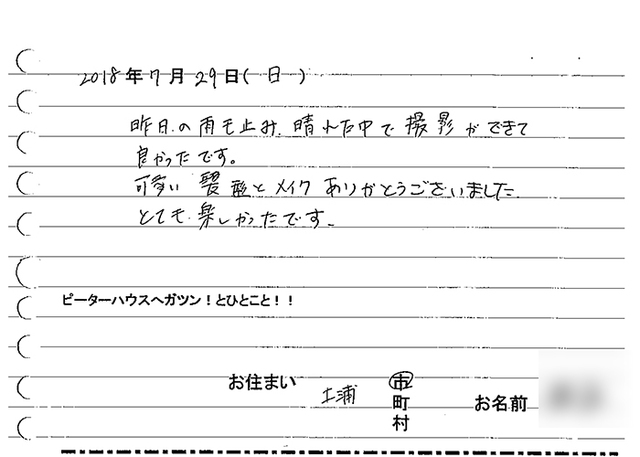 2018年7月29日(日)
昨日の雨も止み、晴れた中で撮影ができて
良かったです。
可愛い髪型とメイクありがとうございました
とても楽しかったです。
ピーターハウスへガツン！とひとこと！！
お住まい 土浦 市 お名前
町
村